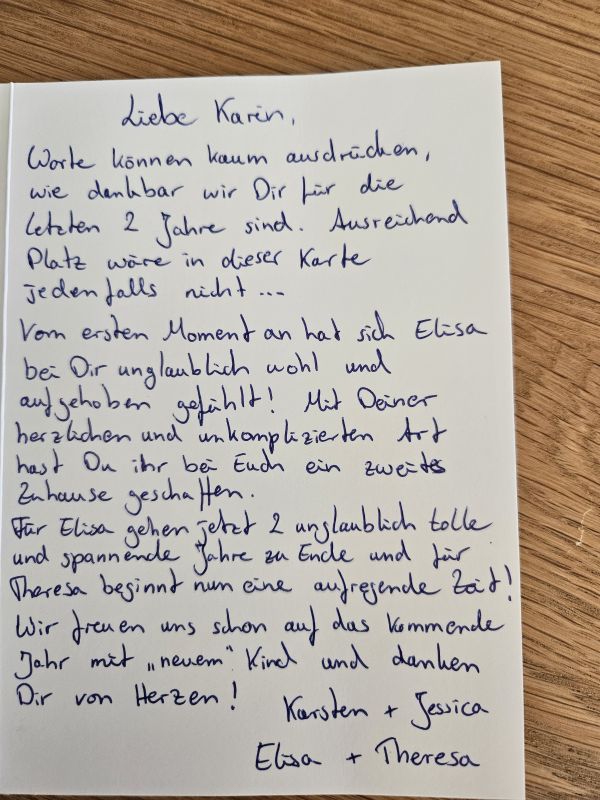 Liebe Karin,
Worte können kaum ausdrücken,
wie dankbar wir Dir für die
letzten 2 Jahre sind. Ausreichend
Platz wäre in dieser Karte
jedenfalls nicht...
Vom ersten Moment an hat sich Elisa
bei Dir unglaublich wohl und
aufgehoben gefühlt! Mit Deiner
herzlichen und unkomplizierten Art
hast Du ihr bei Euch ein zweites
Zuhause geschaffen.
Für Elisa gehen jetzt 2 unglaublich tolle
und spannende Jahre zu Ende und für
Theresa beginnt nun eine aufregende Zeit!
Wir freuen uns schon auf das kommende
Jahr mit „neuem" Kind und danken
Dir von Herzen!
Karsten + Jessica
Elisa + Theresa